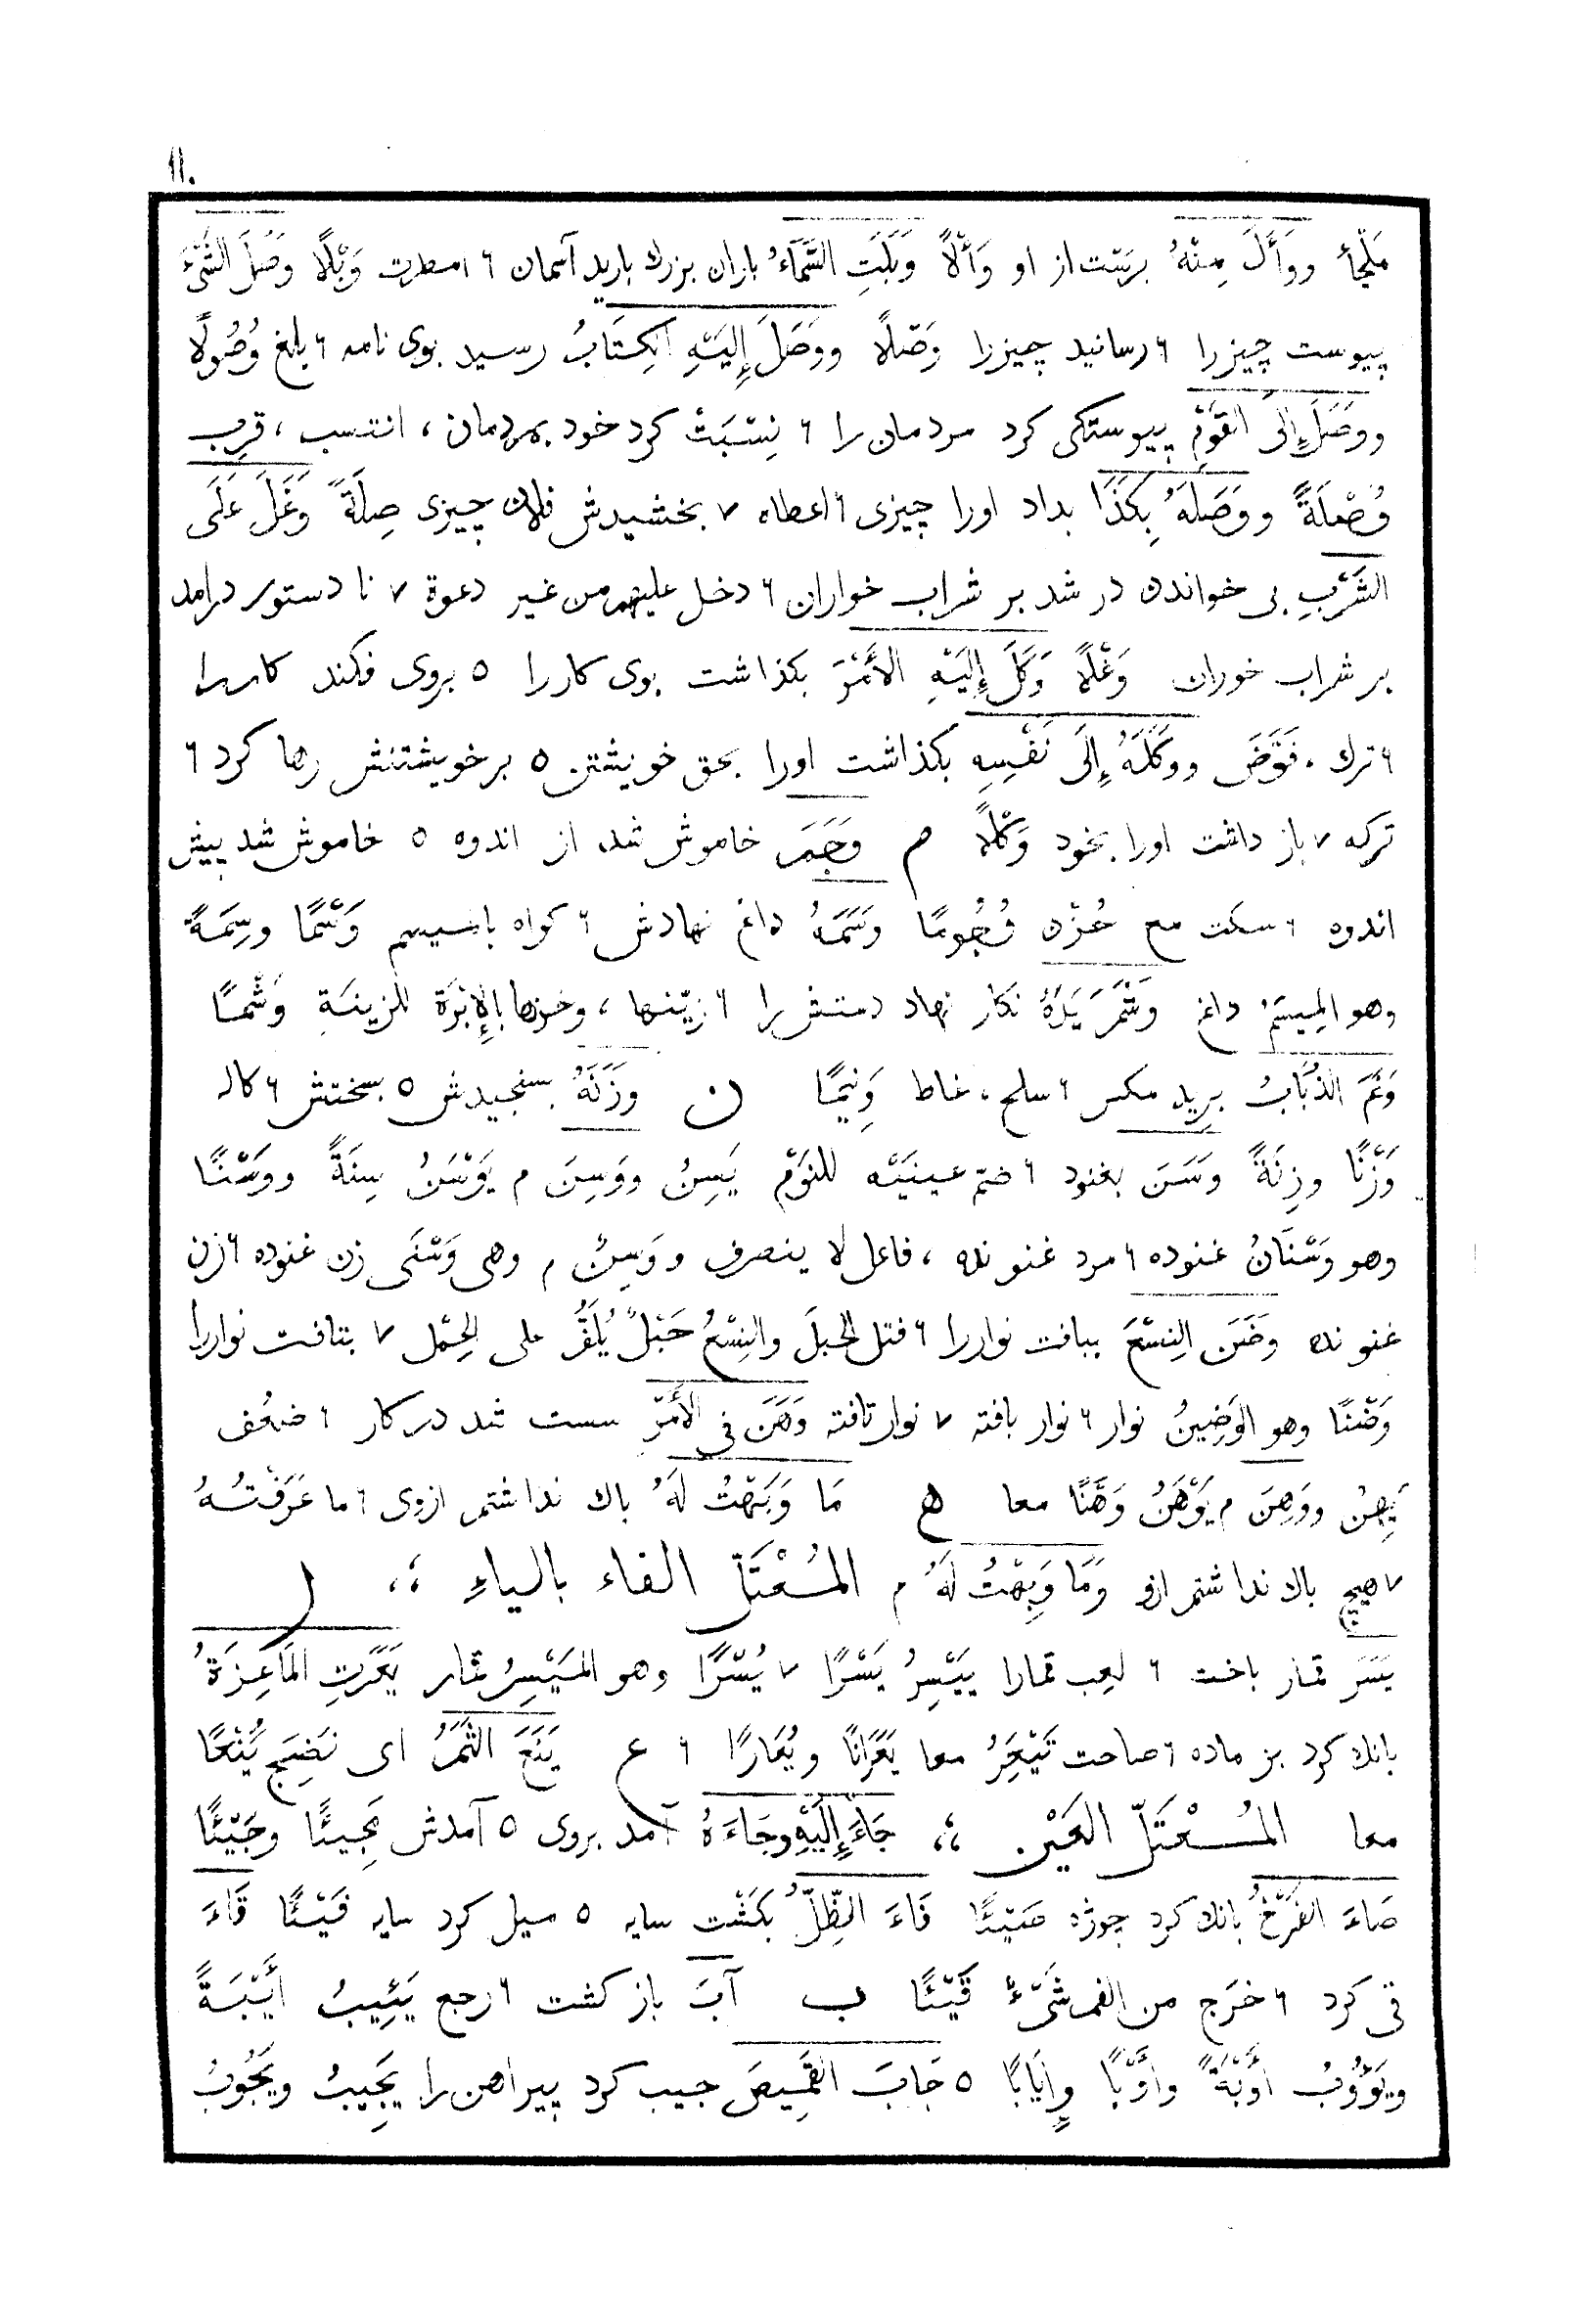 ١١٠
مَلْجَأ ووَأَلَ مِنْهُ برَسْت از او وَأْلًا وَبَلَتِ السَّمَآءُ باران بزرك باريد آسمان ۶ امطرت وَبْلًا وَصَلَ الشَّىْءَ
پيوست چيز را ۶ رسانيد چيز را وَصْلًا ووَصَلَ إِلَيْهِ الكِتَابُ رسيد بوى نامه ۶ بلغ وُصُولًا
ووَصَلَ إِلَى القَوْمِ پيوستكى كرد مردمان را ۶ نِسْبَتْ كرد خود بمردمان ، انتسب ، قرب
وُصْلَةً ووَصَلَهُ بِكَذَا بداد اورا چيزى ۶ اعطاه ٧ بخشيدش فلان چيزى صِلَةً وَغَلَ عَلَى
الشَّرْبِ بى خواندن در شد بر شراب خواران ۶ دخل عليهم من غير دعوة ٧ نا دستور درامد
بر شراب خوران وَغْلًا وَكَلَ إِلَيْهِ الأَمْرَ بكذاشت بوى كار را ٥ بروى فكند كار را
۶ ترك ، فَوَّضَ ووَكَلَهُ إِلَى نَفْسِهِ بكذاشت اورا بحق خويشتن ٥ بر خويشتنش رها كرد ۶
تركه ٧ باز داشت اورا بخود وَكْلًا م وَجَمَ خاموش شد از اندوه ٥ خاموش شد بيش
اندوه ۶ سكت مع حُزْن وُجُومًا وَسَمَهُ داغ نهادش ۶ كواه وَسْمًا وسِمَةً
وهو المِيسَمُ داغ وَشَمَ يَدَهُ نكار نهاد دستش را ۶ زيّنها ، وخزها بالإبْرَة للزينَةِ وَشْمًا
وَنَمَ الذُّبَابُ بريد مكس ۶ سلح ، غاط وَنِيمًا ن وَزَنَهُ بسنجيدش ٥ بسختش ۶ كال
وَزْنًا وزِنَةً وَسَنَ بغنود ۶ ضمّ عينَيْه للنَوْم يَسِنُ ووَسِنَ م يَوْسَنُ سِنَةً ووَسْنًا
وهو وَسْنَانُ غنوده ۶ مرد غنونده ، فاعل لا ينصرف ووَسِنٌ م وهى وَسْنَى زن غنوده ۶ زن
غنونده وَضَنَ النِسْعَ ببافت نوار را ۶ فتل الحبلَ والنِسْعُ حَبْلٌ يُلَفُّ على الحِمْل ٧ بتافت نوار را
وَضْنًا وهو الوَضِينُ نوار ۶ نوار بافته ٧ نوار تافته وَهَنَ فى الأَمْرِ سست شد در كار ۶ ضعُف
يَهِنُ ووَهِنَ م يَوْهَنُ وَهْنًا معا ه مَا وَبَهْتُ لَهُ باك نداشتم ازوى ۶ ما عَرَفْتُهُ
٧ هيچ باك نداشتم ازو وَمَا وَبِهْتُ لَهُ م المُعْتَلّ الفاء بالياء ؛، ر
يَسَرَ قمار باخت ۶ لعِب قمارا يَيْسِرُ يَسْرًا ٧ يُسْرًا وهو المَيْسِرُ قمار يَعَرَتِ المَاعِزَةُ
بانك كرد بز ماده ۶ صاحت تَيْعَِرُ معا يَعَرَانًا ويُعَارًا ۶ ع يَنَعَ الثَّمَرُ اى نَضِجَ يَُنْعًا
معا المُعْتَلّ العَيْن ؛، جَاءَ إِلَيْهِ وجَاءَهُ آمد بروى ٥ آمدش مَجِيئًا وجَيْئًا
صَاءَ الفَرْخُ بانك كرد جوژه صَيْئًا فَاءَ الظِّلُّ بكَشْت سايه ٥ ميل كرد سايه فَيْئًا قَاءَ
قى كرد ۶ خرَج من الفم شَىْءٌ قَيْئًا ب آبَ باز كشت ۶ رجع يَئِيبُ أَيْبَةً
ويَؤُوبُ أَوْبَةً وأَوْبًا وإِيَابًا ٥ جَابَ القَمِيصَ جيب كرد پيراهن را يَجِيبُ ويَجُوبُ